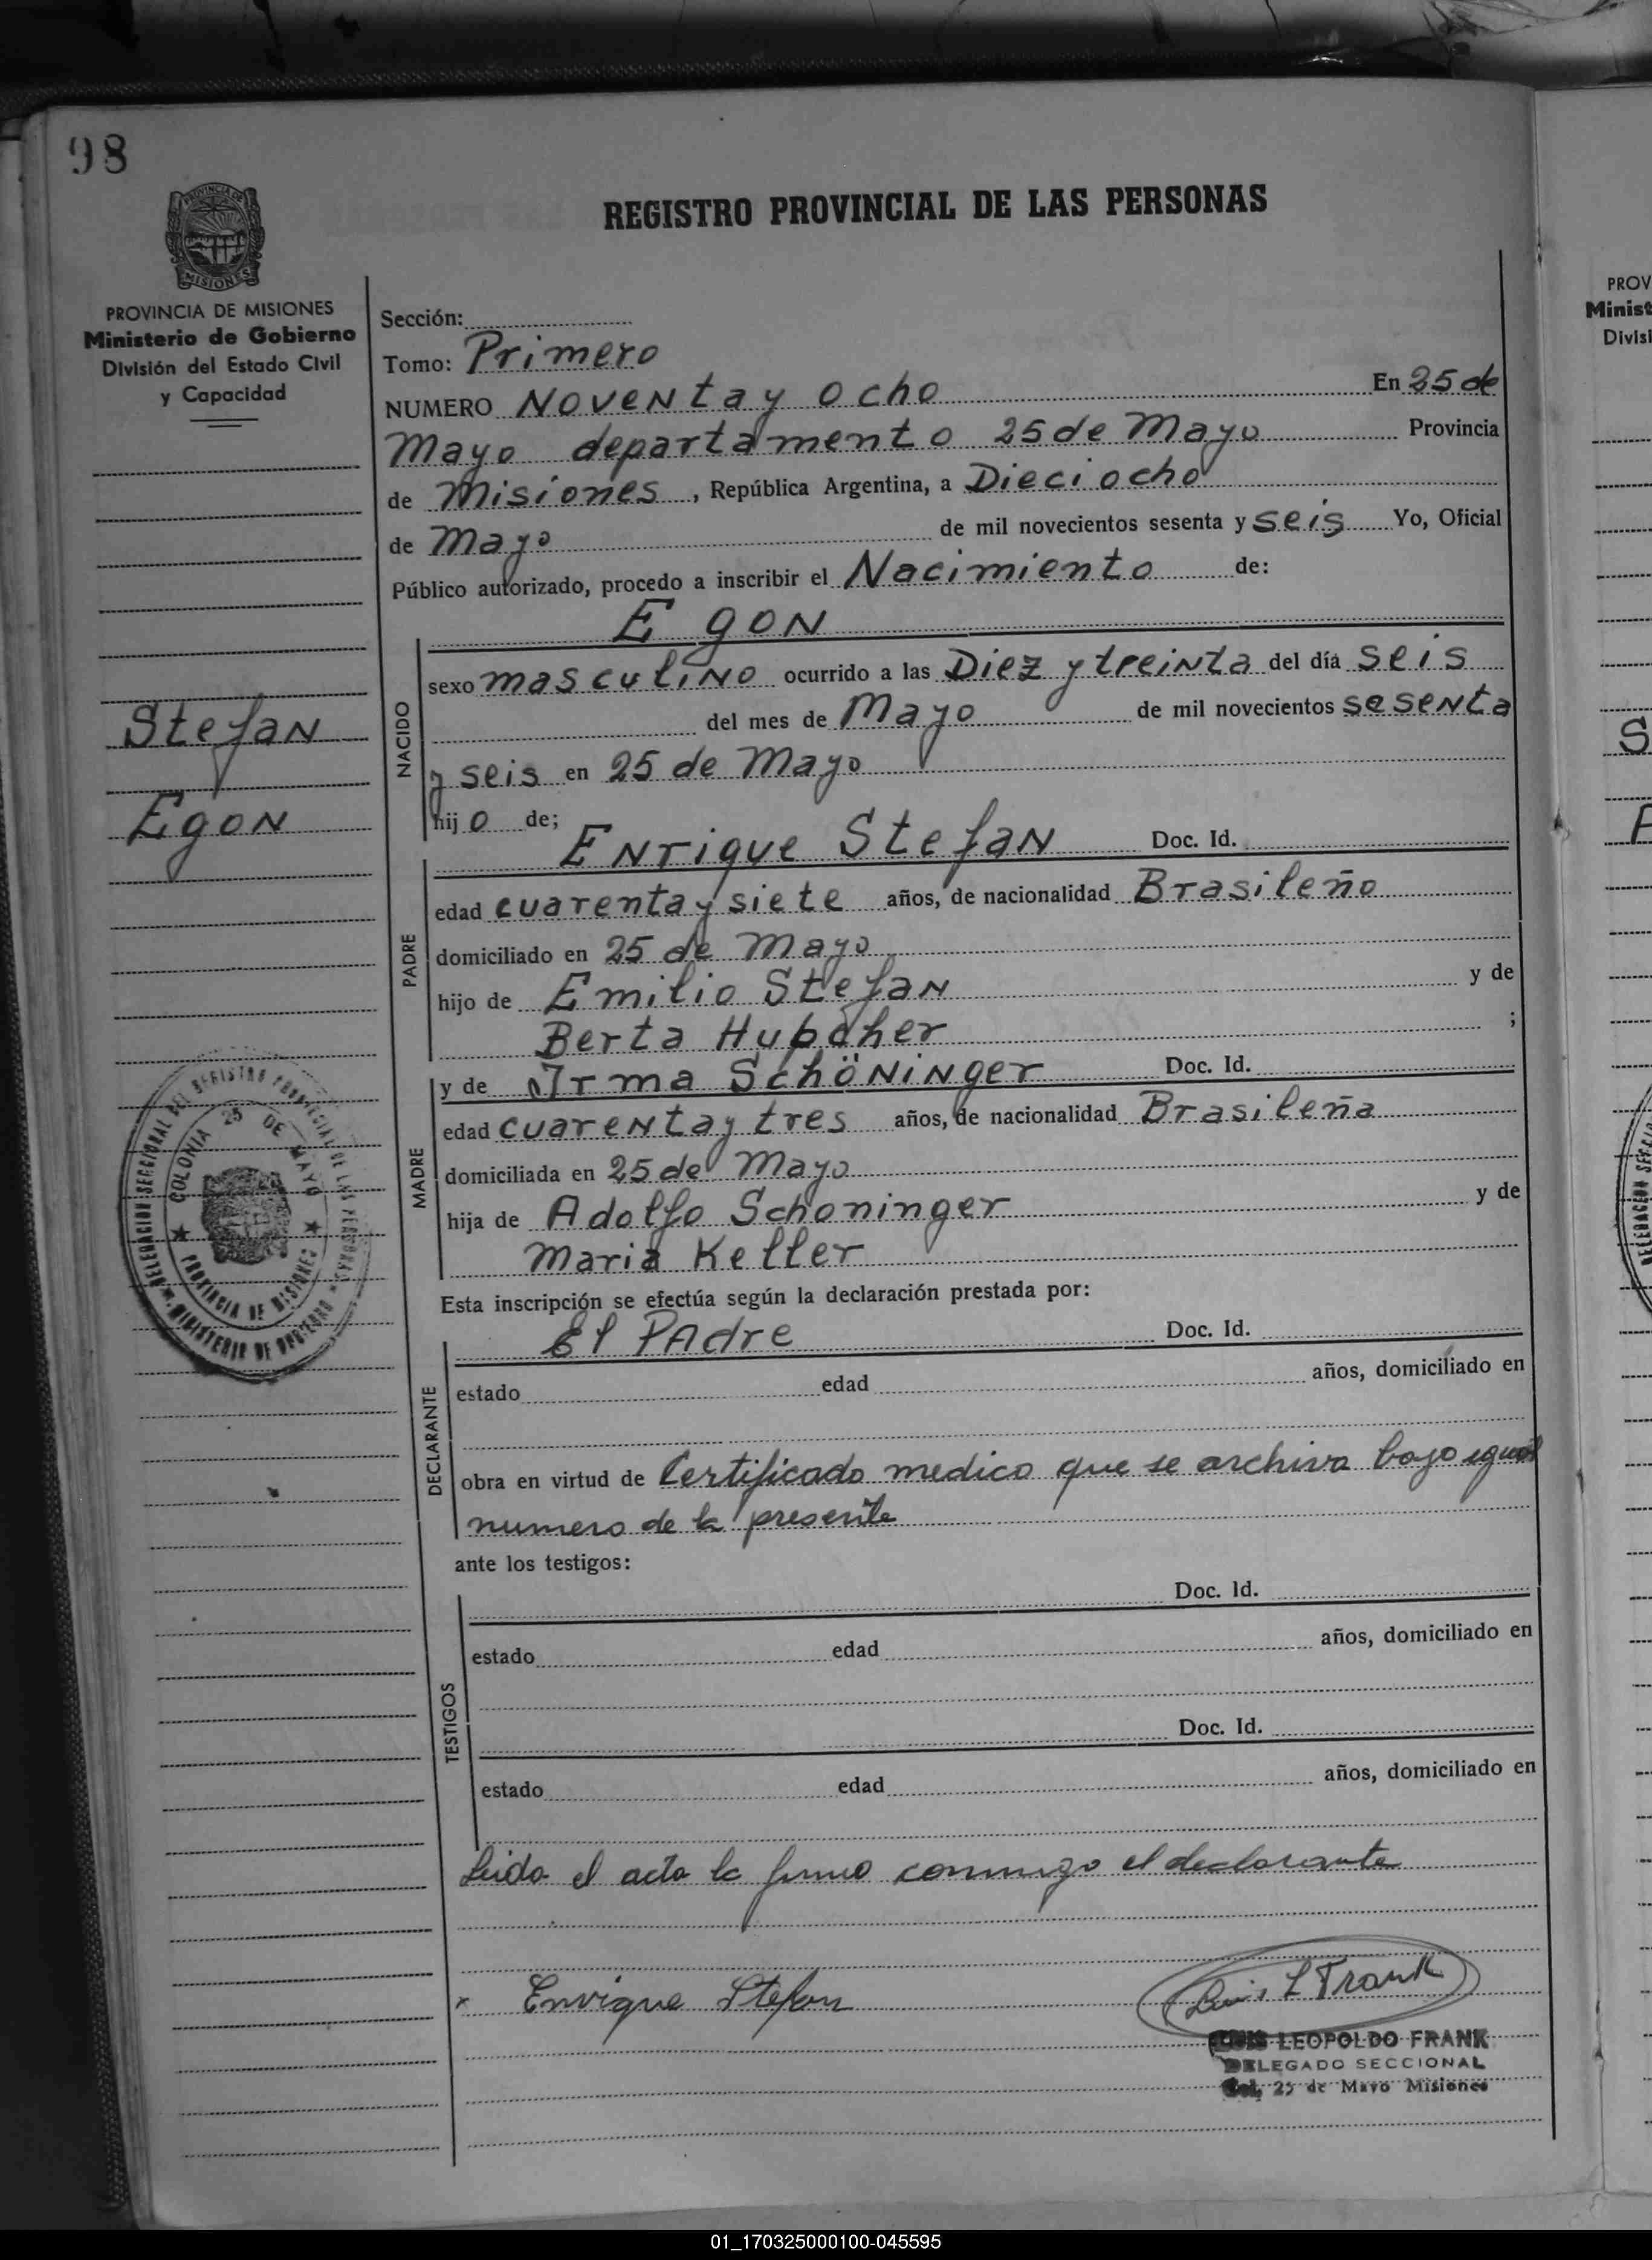 98
PROVINCIA DE
MISIONES
REGISTRO PROVINCIAL DE LAS PERSONAS
PROVINCIA DE MISIONES
Ministerio de Gobierno
División del Estado Civil
y Capacidad
Sección:
Tomo: Primero
NUMERO Noventa y ocho En 25 de
Mayo departamento 25 de Mayo Provincia
de Misiones, República Argentina, a Dieciocho
de Mayo de mil novecientos sesenta y seis Yo, Oficial
Público autorizado, procedo a inscribir el Nacimiento de:
Egon
NACIDO
sexo masculino ocurrido a las Diez y treinta del día seis
del mes de Mayo de mil novecientos sesenta
y seis en 25 de Mayo
hijo de;
Stefan
Egon
PADRE
Enrique Stefan Doc. Id.
edad cuarenta y siete años, de nacionalidad Brasileño
domiciliado en 25 de Mayo
hijo de Emilio Stefan y de
Berta ;
MADRE
y de Irma Schöninger Doc. Id.
edad cuarenta y tres años, de nacionalidad Brasileña
domiciliada en 25 de Mayo
hija de Adolfo Schoninger y de
Maria Keller
DELEGACION SECCIONAL DEL REGISTRO PROVINCIAL DE LAS PERSONAS
MINISTERIO DE GOBIERNO
COLONIA 25 DE MAYO
PROVINCIA DE MISIONES
Esta inscripción se efectúa según la declaración prestada por:
DECLARANTE
El Padre Doc. Id.
estado edad años, domiciliado en
obra en virtud de Certificado medico que se archiva bajo igual
numero de la presente
ante los testigos:
TESTIGOS
Doc. Id.
estado edad años, domiciliado en
Doc. Id.
estado edad años, domiciliado en
Leida el acta la firma conmigo el declarante
x Enrique Stefan
Luis L Frank
LUIS LEOPOLDO FRANK
DELEGADO SECCIONAL
Col. 25 de Mayo Misiones
PROV
Minist
Divisi
S
01_170325000100-045595